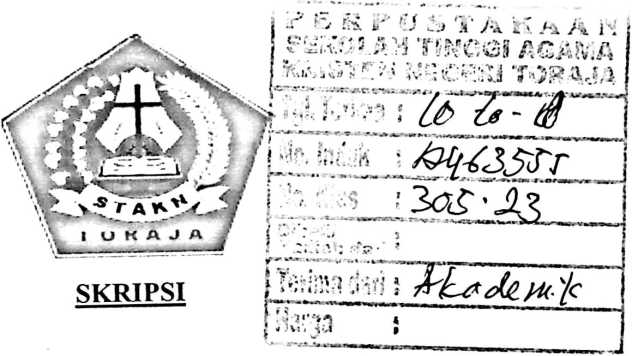 STAKN
TORAJA
SKRIPSI
PERPUSTAKAAN
SEKOLAH TINGGI AGAMA
KRISTEN NEGERI TORAJA
Tgl. Terima :
No. Induk :
No. Klas : 305.23
:
Terima dari : Akademik
Harga :